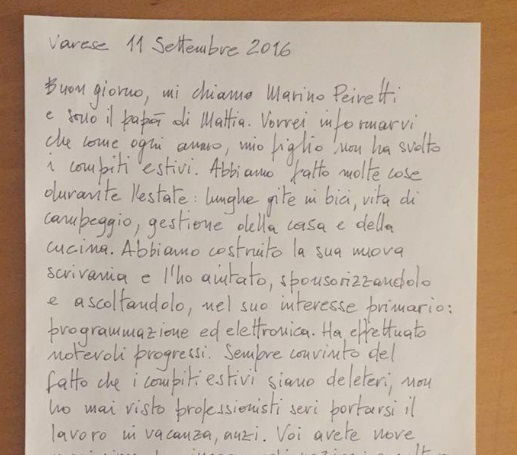 Varese 11 Settembre 2016
Buon giorno, mi chiamo Marino Peiretti
e sono il papà di Mattia. Vorrei informarvi
che come ogni anno, mio figlio non ha svolto
i compiti estivi. Abbiamo fatto molte cose
durante l'estate: lunghe gite in bici, vita di
campeggio, gestione della casa e della
cucina. Abbiamo costruito la sua nuova
scrivania e l'ho aiutato, sponsorizzandolo
e ascoltandolo, nel suo interesse primario:
programmazione ed elettronica. Ha effettuato
notevoli progressi. Sempre convinto del
fatto che i compiti estivi siano deleteri, non
ho mai visto professionisti seri portarsi il
lavoro in vacanza, anzi. Voi avete nove